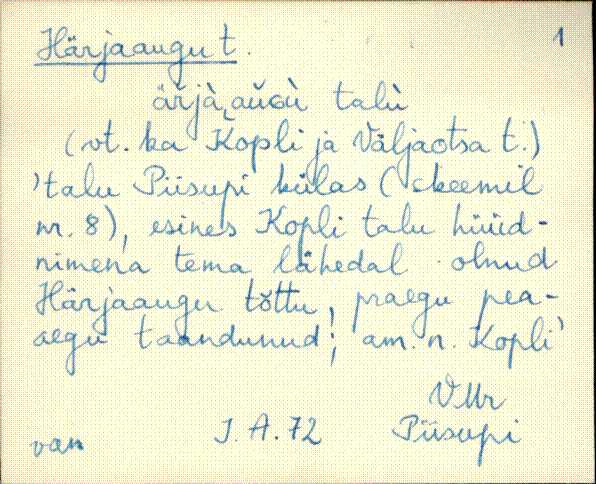 Härjaaugu t. 1
ärjà͔ aùɢù talù
(vt. ka Kopli ja Väljaotsa t.)
'talu Piisupi külas (skeemil
nr. 8), esines Kopli talu hüüd-
nimena tema lähedal olnud
Härjaaugu tõttu, praegu pea-
aegu taandunud; am. n. Kopli'
VMr
van J. A. 72 Piisupi